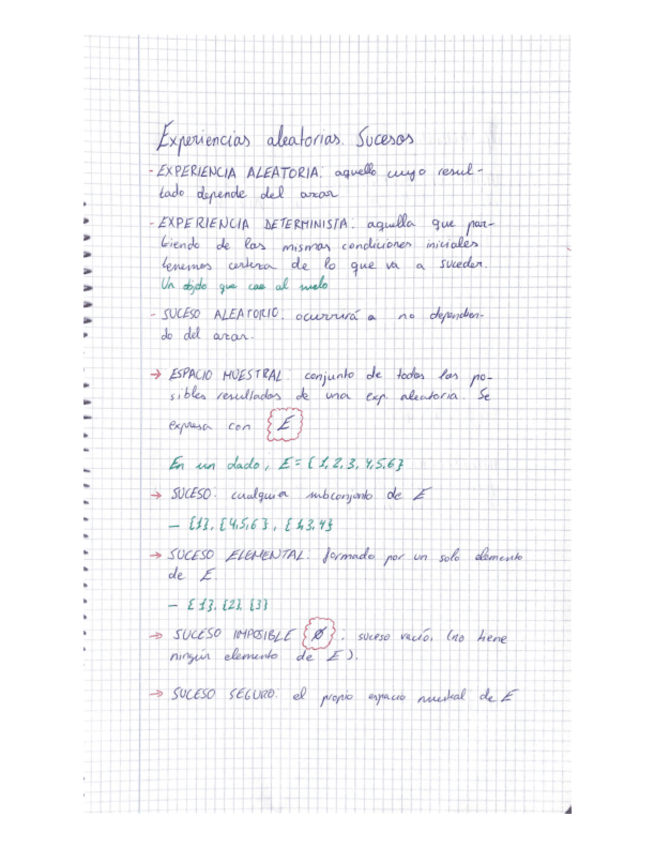 Experiencias aleatorias. Sucesos
- EXPERIENCIA ALEATORIA: aquello cuyo resul-
tado depende del azar
- EXPERIENCIA DETERMINISTA: aquella que par-
tiendo de las mismas condiciones iniciales
tenemos certeza de lo que va a suceder.
Un objeto que cae al suelo
- SUCESO ALEATORIO: ocurrirá o no dependien-
do del azar.
→ ESPACIO MUESTRAL: conjunto de todos los po-
sibles resultados de una exp. aleatoria. Se
expresa con E
En un dado, E = {1, 2, 3, 4, 5, 6}
→ SUCESO: cualquier subconjunto de E
- {1}, {4,5,6}, {1,3,4}
→ SUCESO ELEMENTAL: formado por un solo elemento
de E.
- {1}, {2}, {3}
→ SUCESO IMPOSIBLE Ø: suceso vacío, (no tiene
ningún elemento de E).
→ SUCESO SEGURO: el propio espacio muestral de E